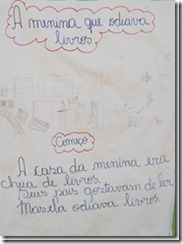 A menina que odiava
livros
Começo
A casa da menina era
cheia de livros.
Seus pais gostavam de ler
Mas ela odiava livros